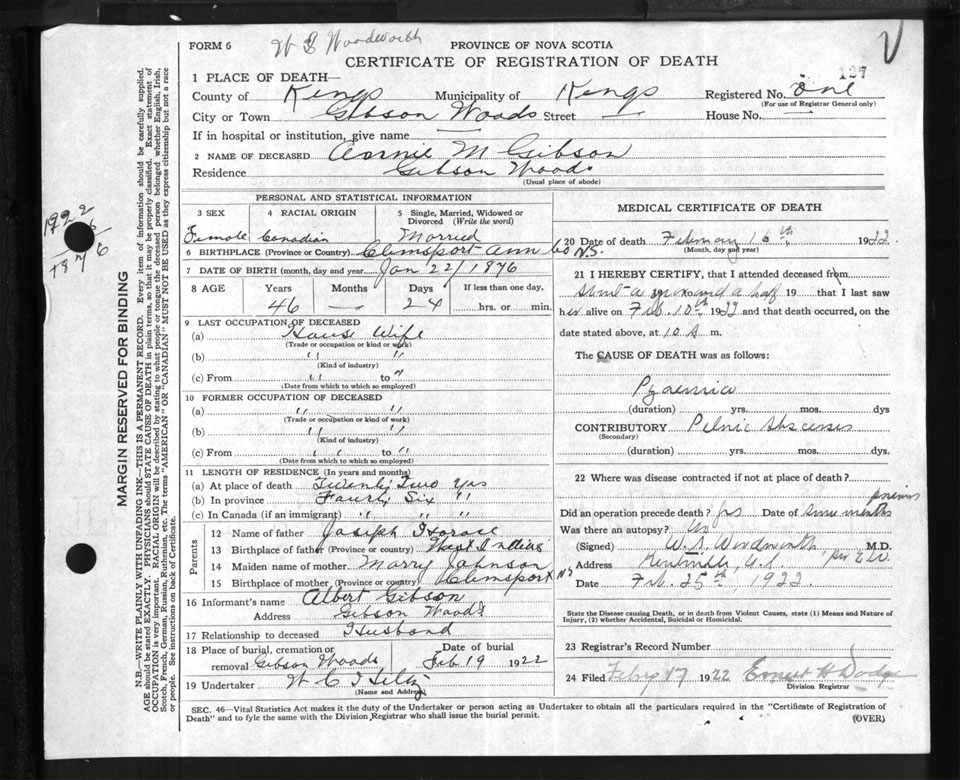 FORM 6
W S Woodworth
PROVINCE OF NOVA SCOTIA
CERTIFICATE OF REGISTRATION OF DEATH
127
1 PLACE OF DEATH—
County of Kings Municipality of Kings Registered No. one
(For use of Registrar General only)
City or Town Gibson Woods Street — House No. —
If in hospital or institution, give name —
2 NAME OF DECEASED Annie M Gibson
Residence Gibson Woods
(Usual place of abode)
PERSONAL AND STATISTICAL INFORMATION
3 SEX
Female
4 RACIAL ORIGIN
Canadian
5 Single, Married, Widowed or Divorced (Write the word)
Married
6 BIRTHPLACE (Province or Country) Clemsport Ann Co N.S.
7 DATE OF BIRTH (month, day and year) Jan 22/1876
8 AGE Years Months Days If less than one day,
46 — 24 hrs. or min.
9 LAST OCCUPATION OF DECEASED
(a) House Wife
(Trade or occupation or kind of work)
(b) " "
(Kind of industry)
(c) From " to "
(Date from which to which so employed)
10 FORMER OCCUPATION OF DECEASED
(a) " "
(Trade or occupation or kind of work)
(b) " "
(Kind of industry)
(c) From " " to "
(Date from which to which so employed)
11 LENGTH OF RESIDENCE (In years and months)
(a) At place of death Twenty Two Yrs
(b) In province Fourty Six "
(c) In Canada (if an immigrant) " " "
Parents
12 Name of father Joseph
13 Birthplace of father (Province or country) West Indies
14 Maiden name of mother Marry Johnson
15 Birthplace of mother (Province or country) Clemsport NS
16 Informant's name Albert Gibson
Address Gibson Woods
17 Relationship to deceased Husband
18 Place of burial, cremation or removal Gibson Woods
Date of burial Feb 19 1922
19 Undertaker W C
(Name and Address)
MEDICAL CERTIFICATE OF DEATH
20 Date of death February 16th 1922
(Month, day and year)
21 I HEREBY CERTIFY, that I attended deceased from
about a mo and a half 19 that I last saw
her alive on Feb. 10th 1922 and that death occurred, on the
date stated above, at 10 A m.
The CAUSE OF DEATH was as follows:
Pyaemia
(duration) yrs. mos. dys
CONTRIBUTORY Pelvic Abscesses
(Secondary)
(duration) yrs. mos. dys.
22 Where was disease contracted if not at place of death?
Did an operation precede death? Yes Date of some months previous
Was there an autopsy? No
(Signed) W. S. Woodworth, M.D.
per E.W.
Address Kentville, N.S.
Date Feb. 25th, 1922
State the Disease causing Death, or in death from Violent Causes, state (1) Means and Nature of Injury, (2) whether Accidental, Suicidal or Homicidal.
23 Registrar's Record Number
24 Filed Feby 17 1922 Ernest H Dodge
Division Registrar
SEC. 46—Vital Statistics Act makes it the duty of the Undertaker or person acting as Undertaker to obtain all the particulars required in the "Certificate of Registration of
Death" and to fyle the same with the Division Registrar who shall issue the burial permit.
(OVER)
MARGIN RESERVED FOR BINDING
N.B.—WRITE PLAINLY WITH UNFADING INK—THIS IS A PERMANENT RECORD. Every item of information should be carefully supplied.
AGE should be stated EXACTLY. PHYSICIANS should STATE CAUSE OF DEATH in plain terms, so that it may be properly classified. Exact statement of
OCCUPATION is very important. RACIAL ORIGIN will be described by stating to what people or tongue the deceased person belonged whether English, Irish,
Scotch, French, German, Russian, Ruthenian, etc. The terms "AMERICAN" OR "CANADIAN" MUST NOT BE USED as they express citizenship but not a race
or people. See instructions on back of Certificate.